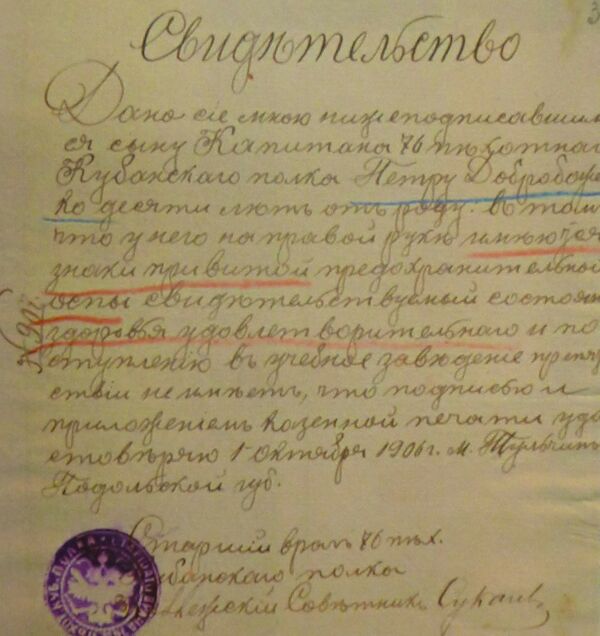 3
Свидѣтельство
Дано сіе мною нижеподписавшим
ся сыну Капитана 76 пѣхотнаг
Кубанскаго полка Петру Добробоже
ко десяти лѣтъ отъ роду. въ том
что у него на правой рукѣ имѣются
знаки привитой предохранительной
оспы свидѣтельствуемый состоян
здоровья удовлетворительнаго и по
ступленію въ учебное заведеніе препя
ствій не имѣетъ, что подписью и
приложеніемъ казенной печати удо
стовѣряю 1 октября 1906 г. м. Тульчинъ
Подольской губ.
Старшій врачъ 76 пѣх.
Кубанскаго полка
Совѣтникъ